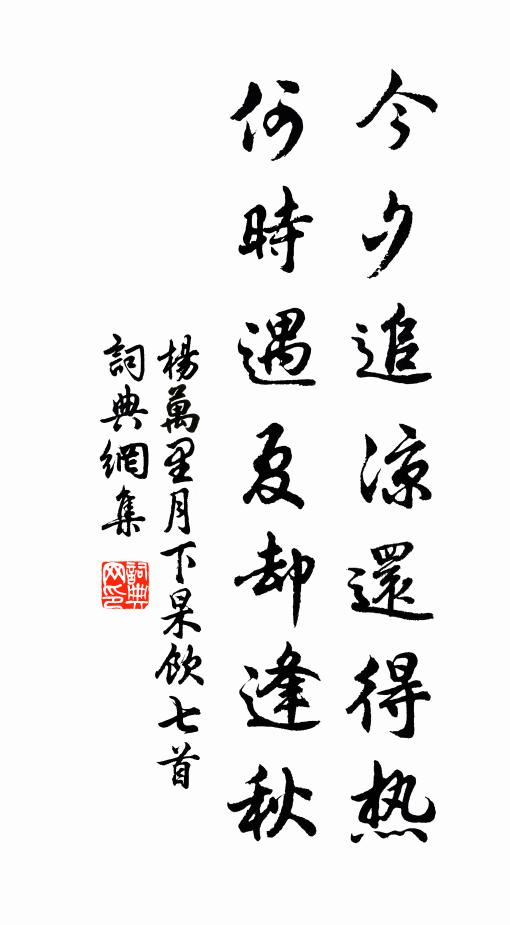 今夕追涼還得热
何時遇夏却逢秋
楊萬里月下杲飲七首
詞典網集
詞典网印